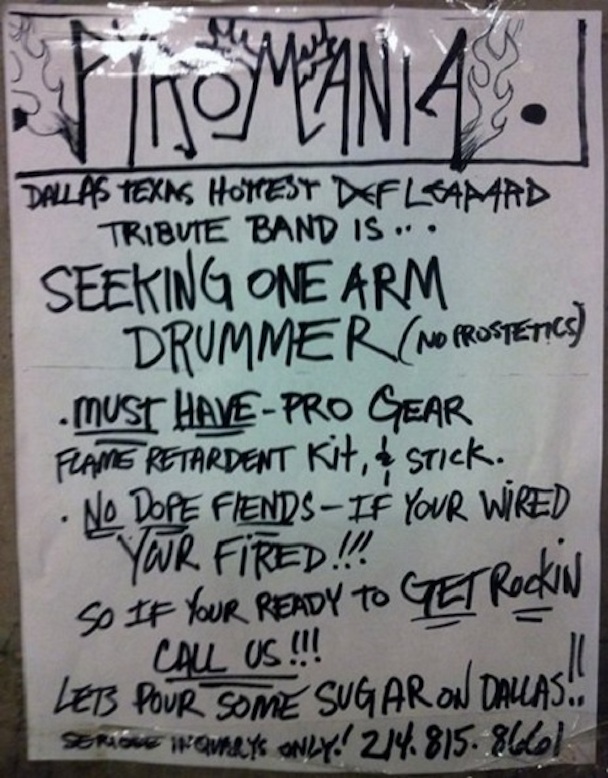 PYROMANIA.
DALLAS TEXAS HOTTEST DEF LEAPARD
TRIBUTE BAND IS...
SEEKING ONE ARM
DRUMMER (NO PROSTETICS)
. MUST HAVE - PRO GEAR
FLAME RETARDENT Kit, & STICK.
. NO DOPE FIENDS - IF YOUR WIRED
YOUR FIRED!!!
SO IF YOUR READY TO GET ROCKiN
CALL US!!!
LETS POUR SOME SUGAR ON DALLAS!!
SERIOUS INQUARYS ONLY! 214.815.8661